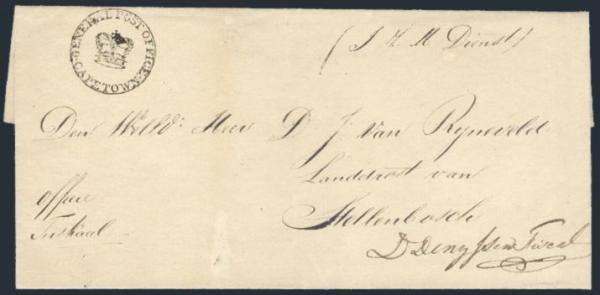 GENERAL POST OFFICE
CAPE TOWN
(I Z M Dienst)
Den Weled: Heer D J Van Ryneveld
Landdrost van
Stellenbosch
office
Fiskaal
D Denyssen Fiscal